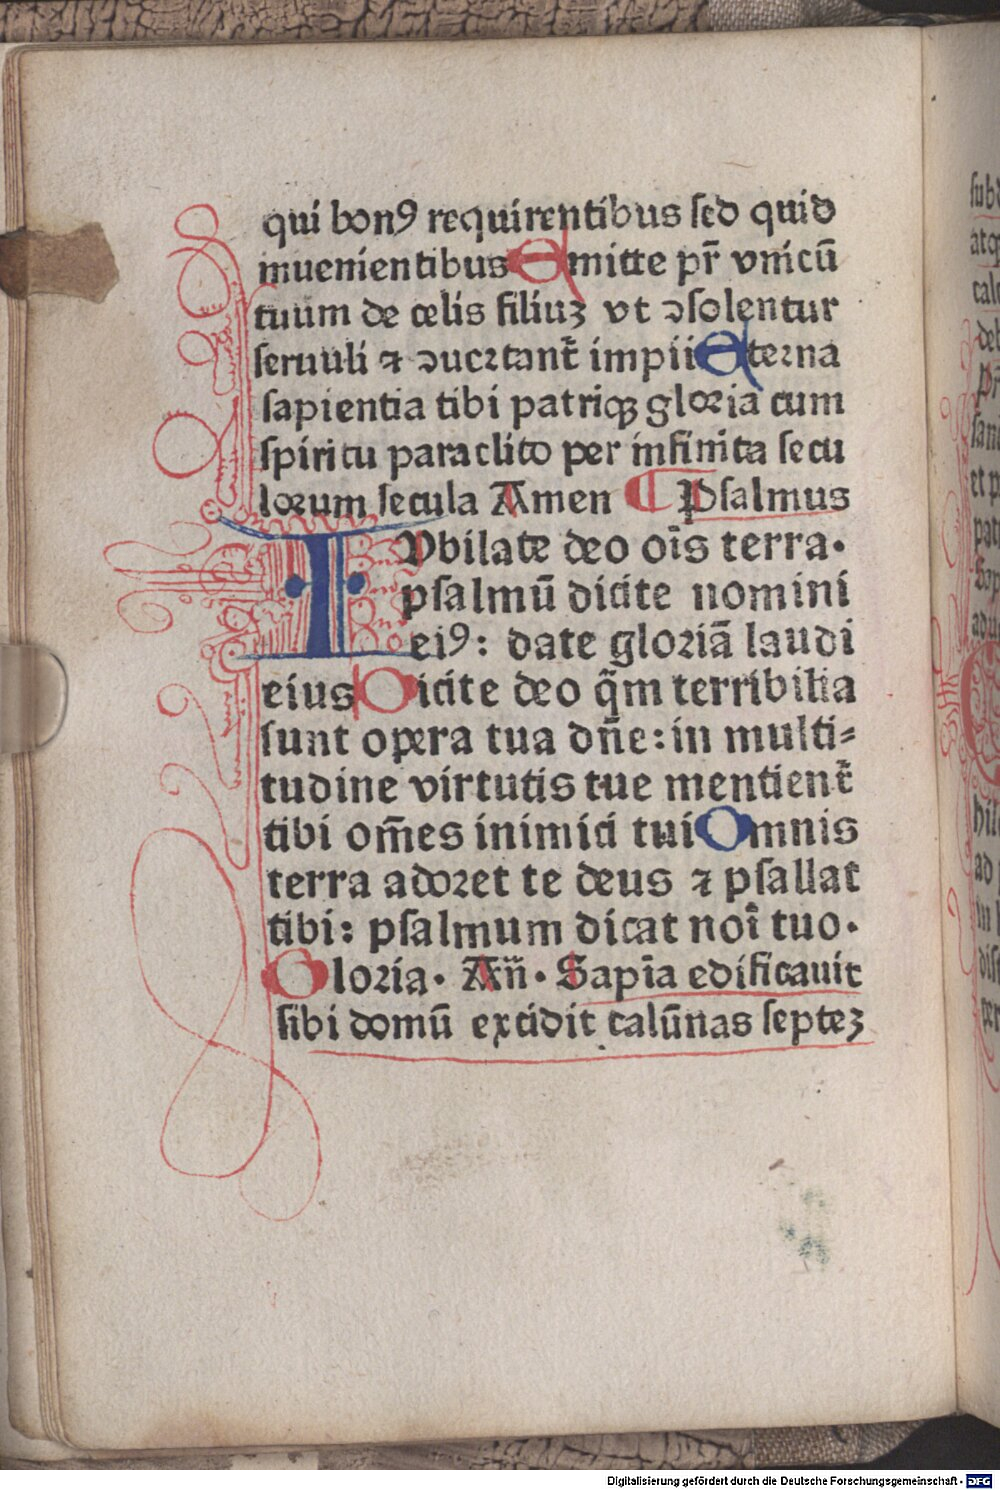 qui bonꝰ requirentibus sed quid
inuenientibus Emitte pr̄ vnicū
tuum de celis filiuꝫ vt ↄsolentur
seruuli ⁊ ↄuertant̄ impii Eterna
sapientia tibi patriqꝫ gloria cum
spiritu paraclito per infinita secu
lorum secula Amen Psalmus
IVbilate deo oīs terra.
psalmū dicite nomini
eiꝰ: date gloriā laudi
eius Dicite deo q̄m terribilia
sunt opera tua dn̄e: in multi=
tudine virtutis tue mentient̄
tibi om̄es inimici tui Omnis
terra adoret te deus ⁊ psallat
tibi: psalmum dicat noī tuo.
Gloria. An̄. Sapīa edificauit
sibi domū excidit calūnas septeꝫ
sub
atq
calu
det
san
et p
pat
Sap
adu
hil
ad
in
dis
Digitalisierung gefördert durch die Deutsche Forschungsgemeinschaft - DFG